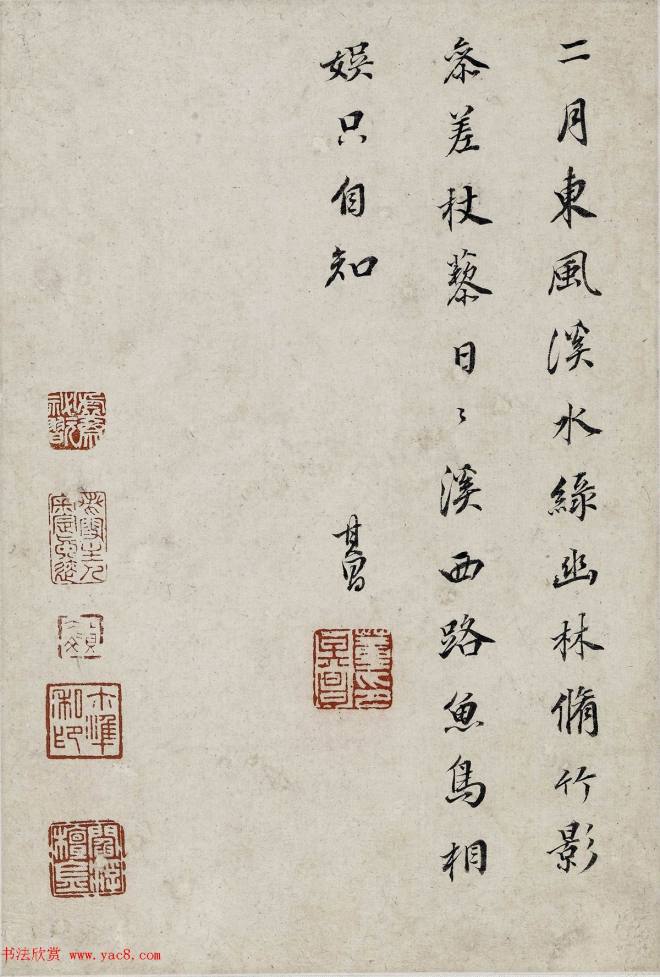 二月東風溪水綠幽林脩竹影
參差杖藜日〻溪西路魚鳥相
娛只自知
其昌
董其昌印
書法欣賞 www.yac8.com